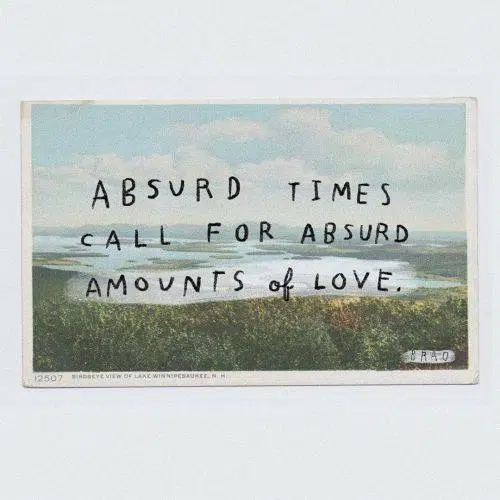 ABSURD TIMES
CALL FOR ABSURD
AMOUNTS of LOVE.
BRAD
12507 BIRDSEYE VIEW OF LAKE WINNIPESAUKEE, N. H.